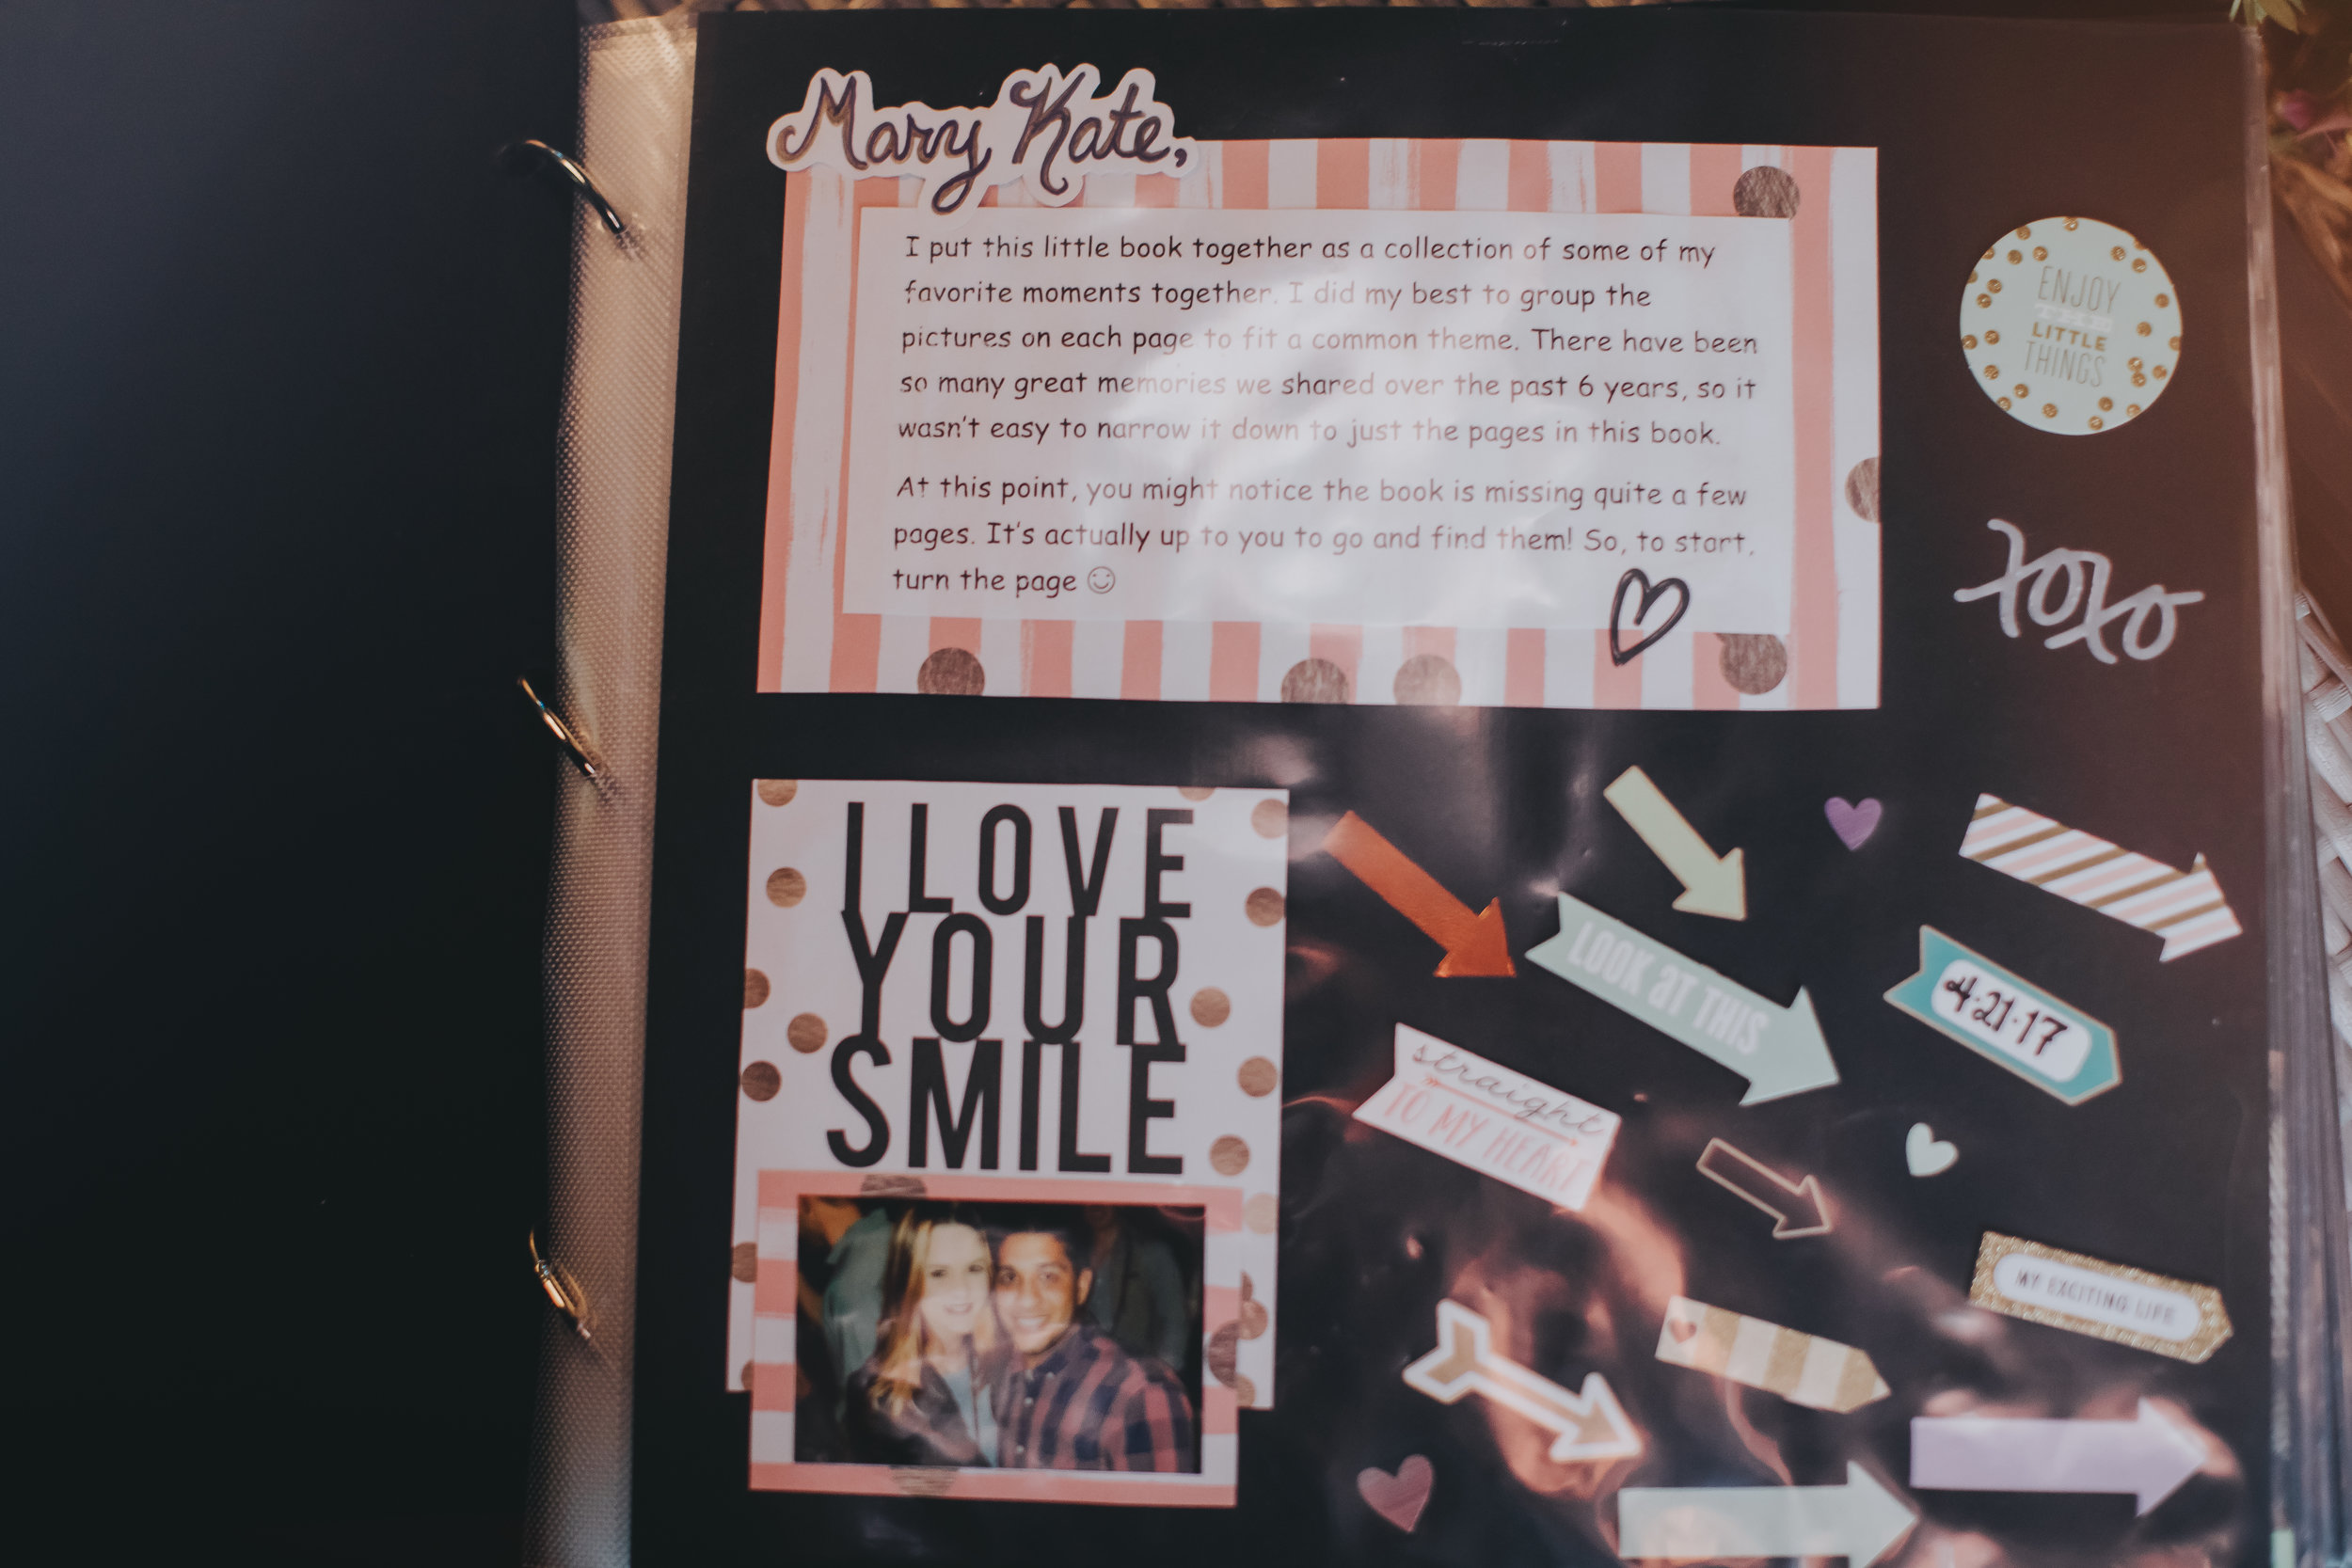 Mary Kate,
I put this little book together as a collection of some of my
favorite moments together. I did my best to group the
pictures on each page to fit a common theme. There have been
so many great memories we shared over the past 6 years, so it
wasn't easy to narrow it down to just the pages in this book.
At this point, you might notice the book is missing quite a few
pages. It's actually up to you to go and find them! So, to start,
turn the page ☺
ENJOY
THE
LITTLE
THINGS
xoxo
I LOVE
YOUR
SMILE
LOOK aT THIS
4·21·17
straight
TO MY HEART
MY EXCITING LIFE